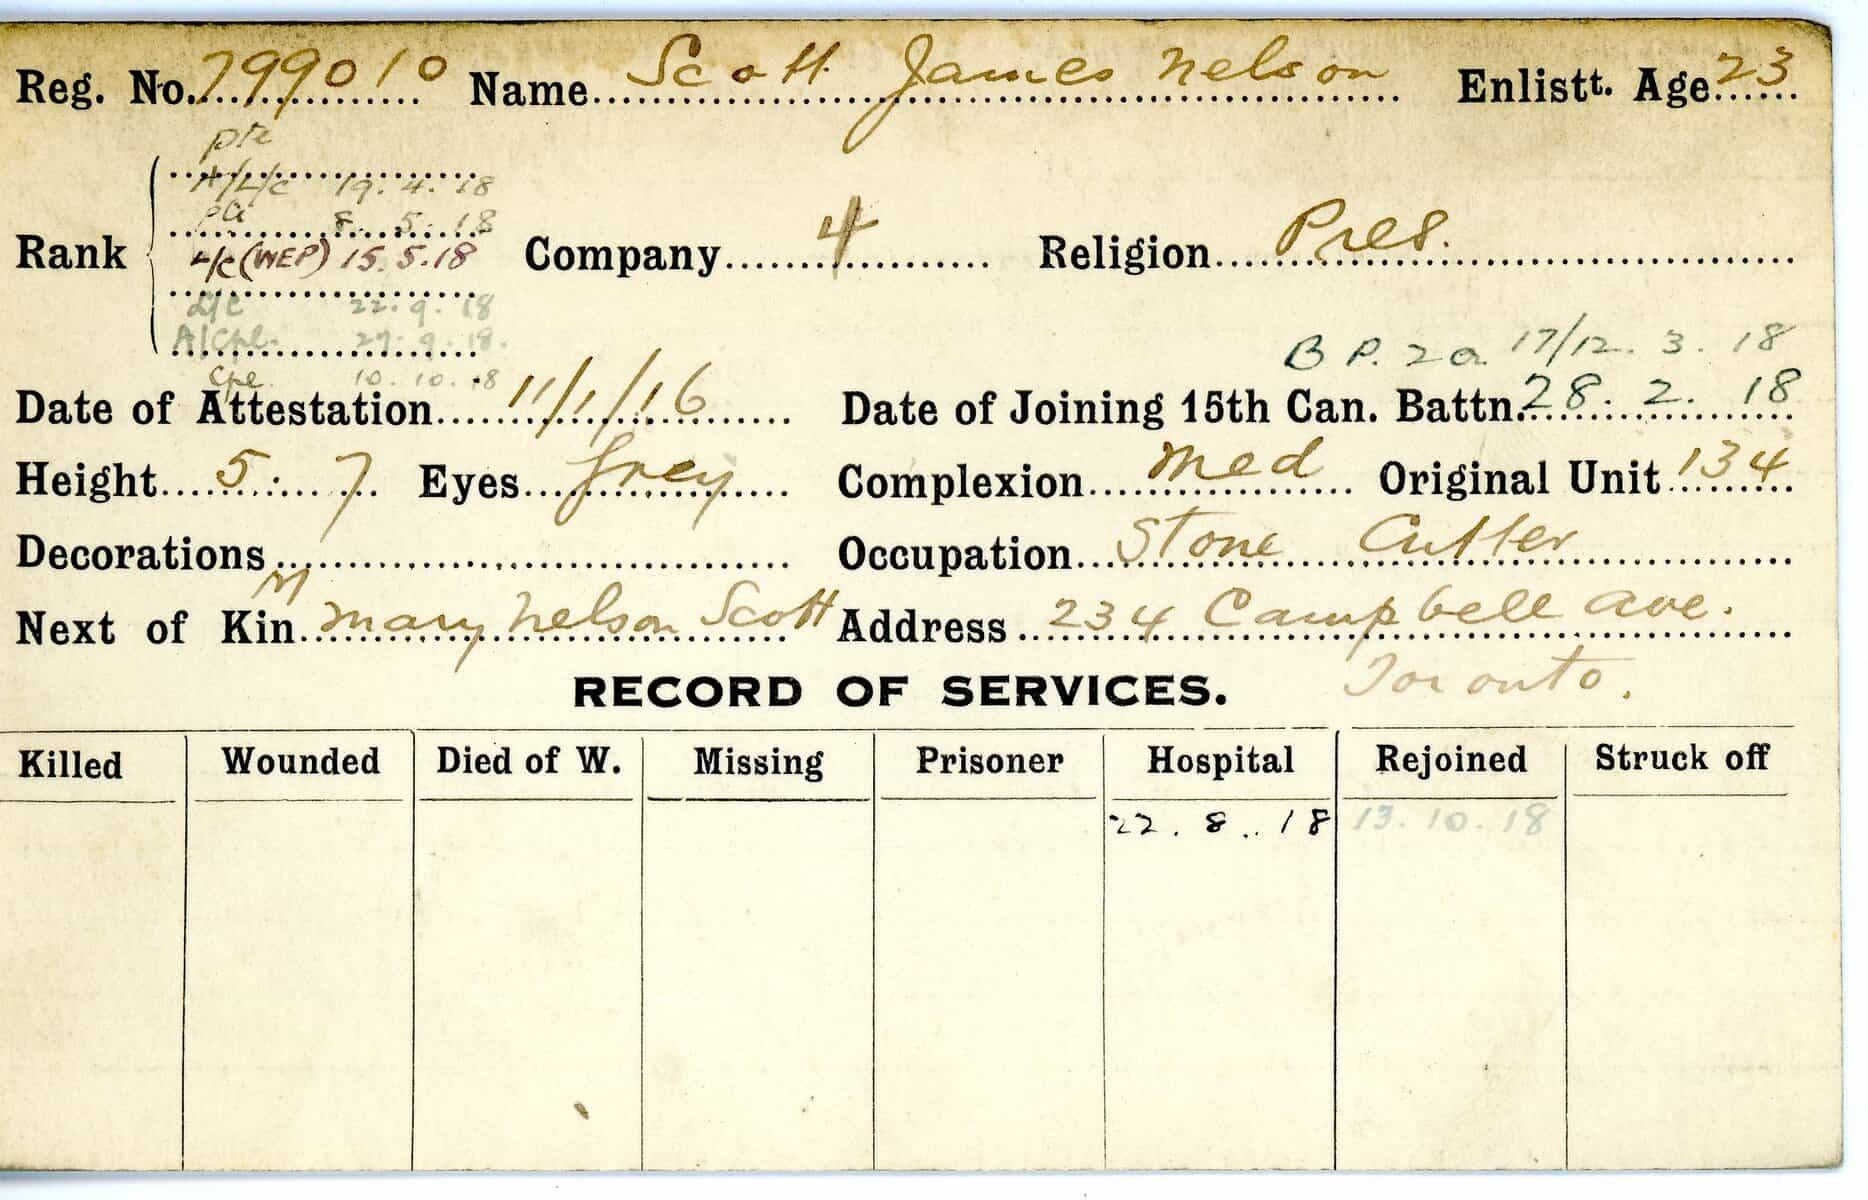 Reg. No. 799010 Name Scott James Nelson Enlistt. Age 23
Pte
A/L/c 19.4.18
Pte 8.5.18
Rank L/c (WEP) 15.5.18 Company 4 Religion Pres.
L/C 22.9.18
A/Cpl. 27.9.18.
B P. 2a 17/12.3.18
Cpl 10.10.18
Date of Attestation 11/1/16 Date of Joining 15th Can. Battn. 28.2.18
Height 5.7 Eyes Grey Complexion Med Original Unit 134
Decorations Occupation Stone Cutter
M
Next of Kin Mary Nelson Scott Address 234 Campbell Ave.
Toronto.
RECORD OF SERVICES.
Killed Wounded Died of W. Missing Prisoner Hospital Rejoined Struck off
22.8.18 13.10.18